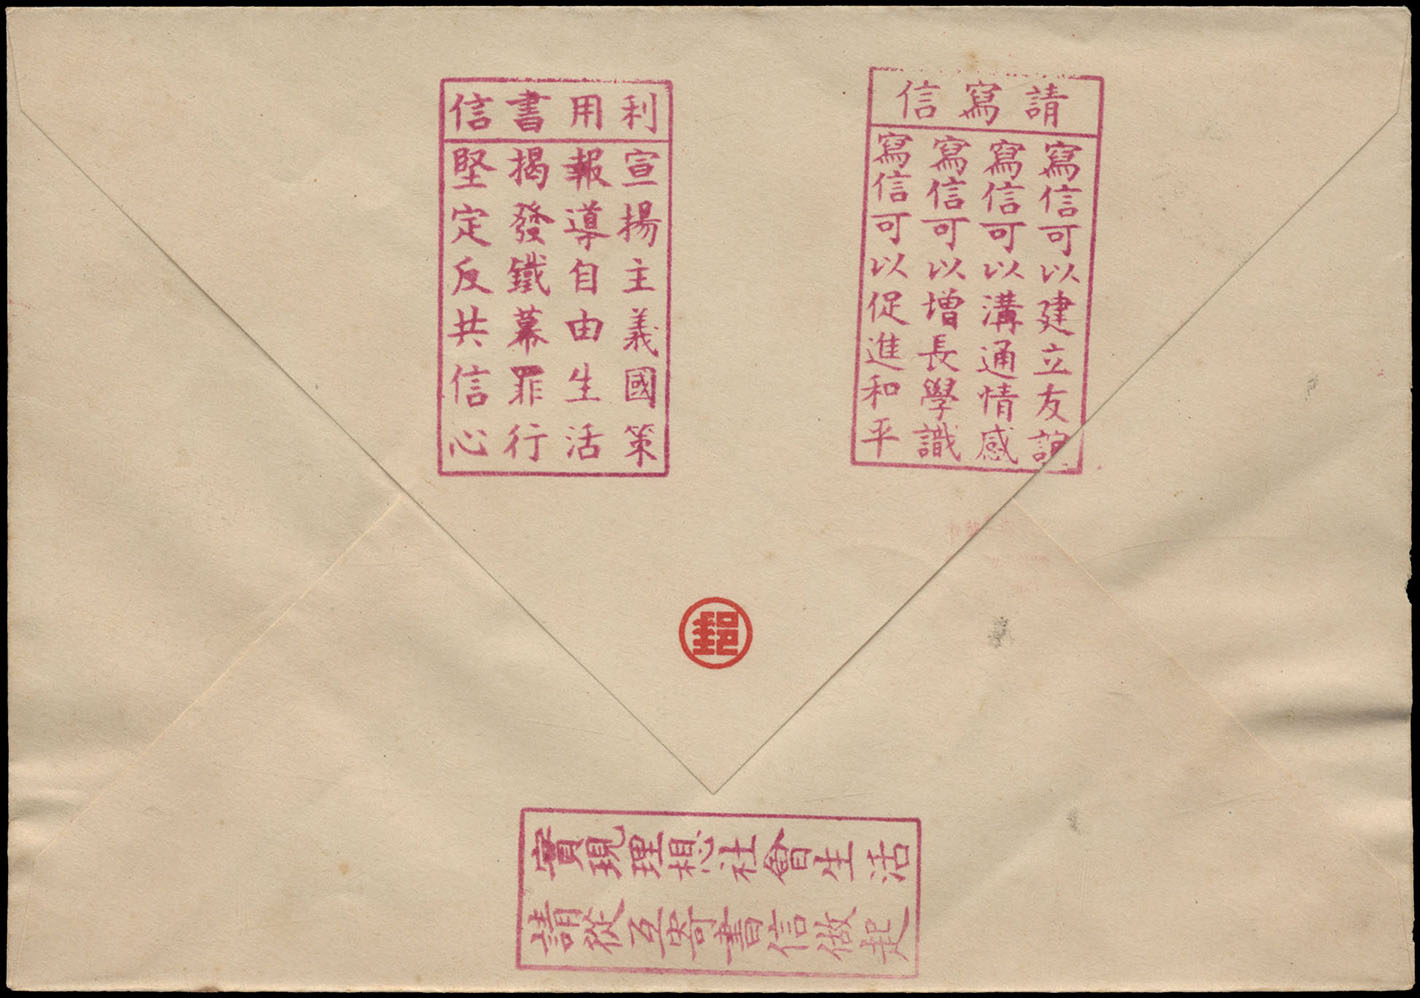 請寫信
寫信可以建立友誼
寫信可以溝通情感
寫信可以增長學識
寫信可以促進和平
利用書信
宣揚主義國策
報導自由生活
揭發鐵幕罪行
堅定反共信心
郵
實現理想社會生活
請從互寄書信做起